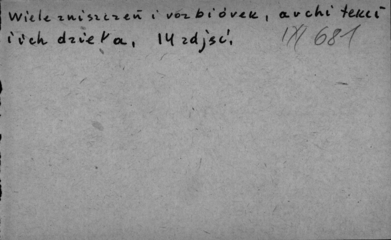 Wiele zniszczeń i rozbiórek, architekci
i ich dzieła, 14 zdjęć.
681